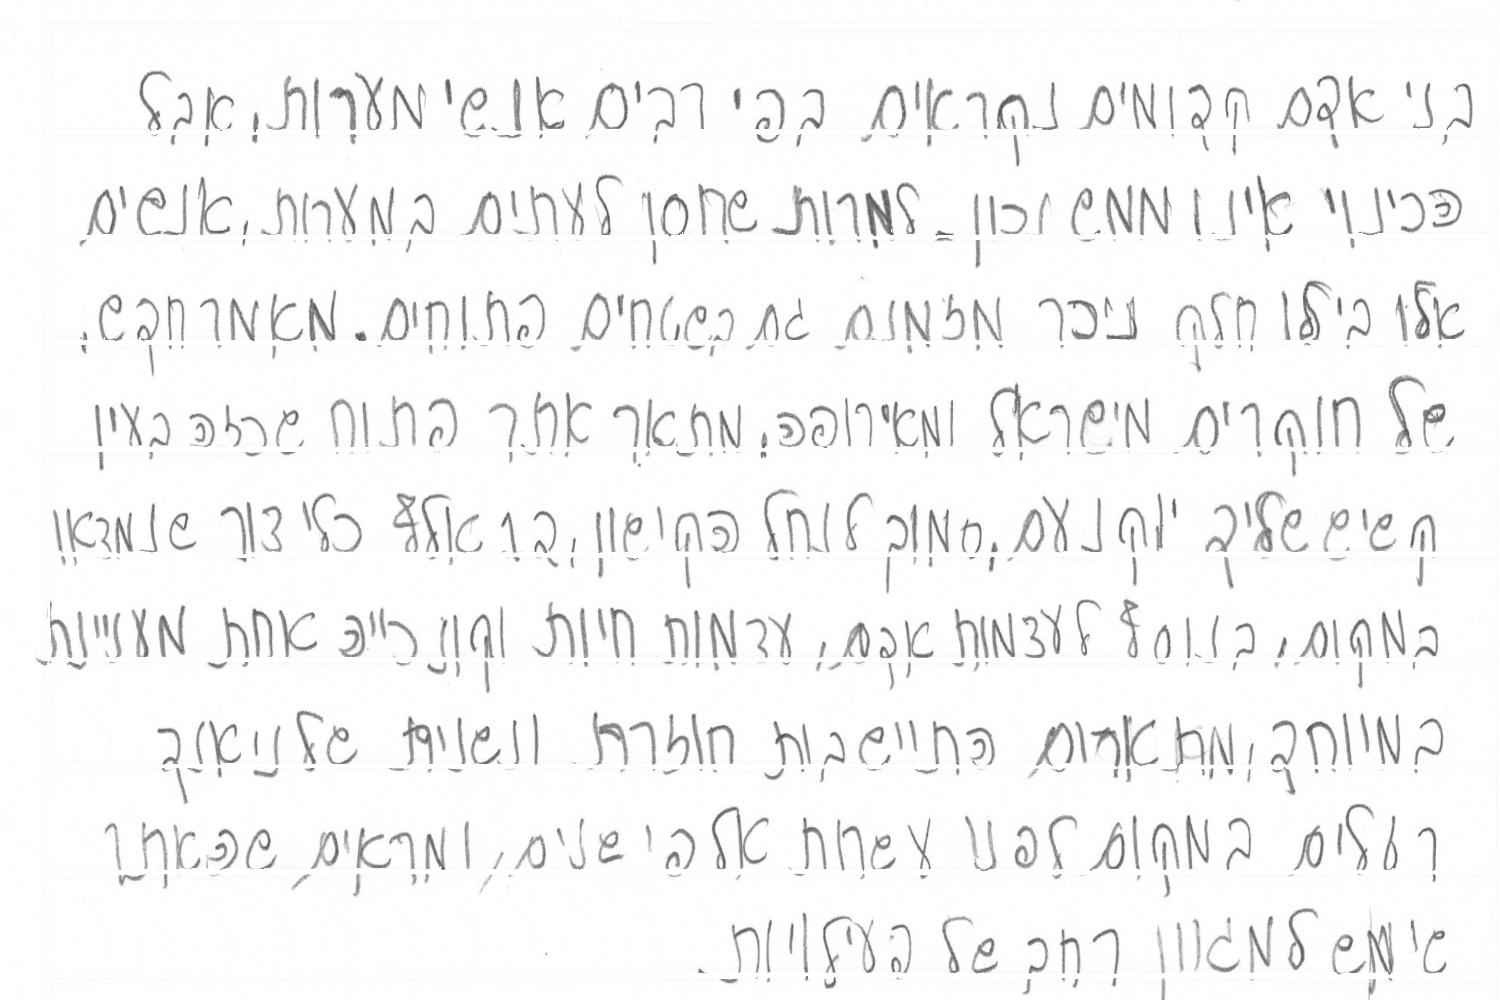 בני אדם קדומים נקראים בפי רבים אנשי מערות, אבל
הכינוי אינו ממש נכון - למרות שחסו לעתים במערות, אנשים
אלו בילו חלק ניכר מזמנם גם בשטחים פתוחים. מאמר חדש,
של חוקרים מישראל ומאירופה, מתאר אתר פתוח שכזה בעין
קשיש שליד יוקנעם, סמוך לנחל הקישון, בו אלפי כלי צור שנמצאו
במקום, בנוסף לעצמות אדם, עצמות חיות וקונכייה אחת מעניינת
במיוחד, מתארים התיישבות חוזרת ונשנית של ניאנד
רטלים במקום לפני עשרות אלפי שנים, ומראים שהאתר
שימש למגוון רחב של פעילויות.